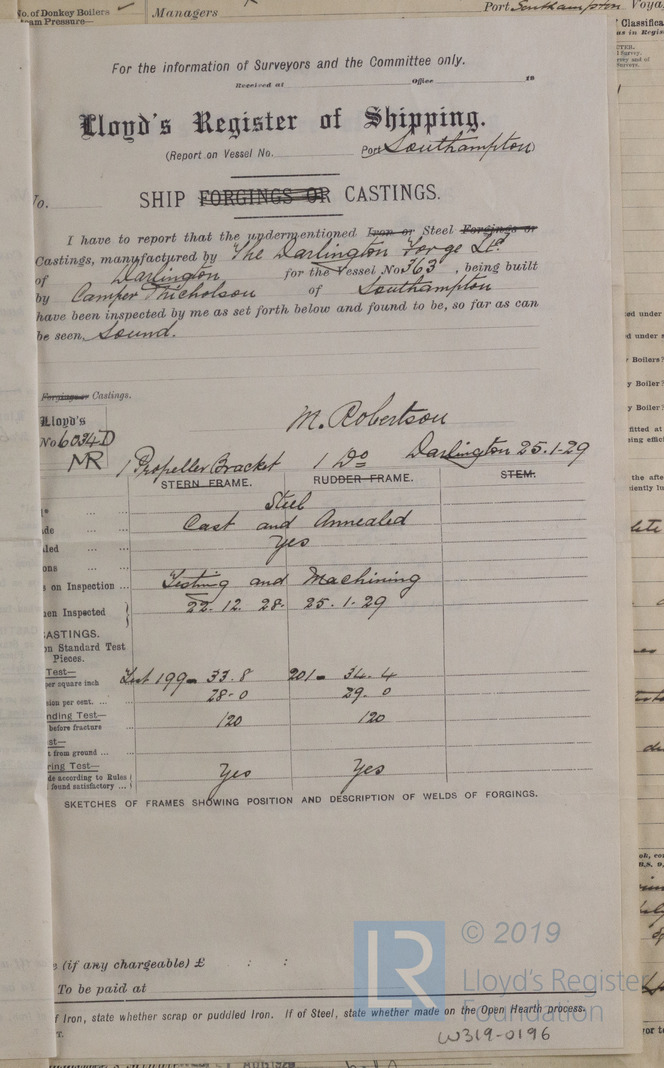 No. of Donkey Boilers
am Pressure—
Managers
Port Southampton Voya
Classifica
as in Regis
For the information of Surveyors and the Committee only.
Received at Office 18
Lloyd's Register of Shipping.
(Report on Vessel No. Port Southampton)
No.
SHIP FORGINGS OR CASTINGS.
I have to report that the undermentioned Iron or Steel Forgings or
Castings, manufactured by The Darlington Forge Ltd.
of Darlington for the Vessel No 363, being built
by Camper Nicholson of Southampton
have been inspected by me as set forth below and found to be, so far as can
be seen, Sound.
Forgings or Castings.
Lloyd's
No 6034D
MR
M. Robertson
Darlington 25.1-29
1 Propeller Bracket 1 Do
STERN FRAME. RUDDER FRAME. STEM.
Steel
de Cast and Annealed
led Yes
ons
s on Inspection ... Testing and Machining
en Inspected 22.12.28. 25.1-29
CASTINGS.
on Standard Test
Pieces.
Test—
per square inch Test 199- 33.8 201- 34.4
sion per cent. ... 28-0 29.0
nding Test—
before fracture 120 120
st—
t from ground ...
ring Test—
de according to Rules
found satisfactory ... Yes Yes
SKETCHES OF FRAMES SHOWING POSITION AND DESCRIPTION OF WELDS OF FORGINGS.
e (if any chargeable) £ : :
To be paid at
f Iron, state whether scrap or puddled Iron. If of Steel, state whether made on the Open Hearth process.
T.
LR
© 2019
Lloyd's Register
Foundation
W319-0196
ed under
ed under s
Boilers?
y Boiler?
y Boiler?
fitted at
ing effici
the afte
iently lu